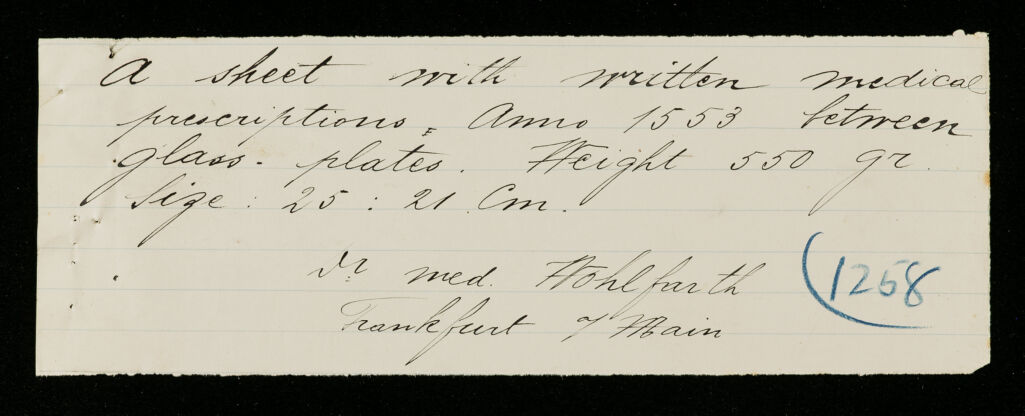 A sheet with written medical
prescriptions, Anno 1553 between
glass-plates. Weight 550 gr.
Size: 25 : 21. Cm.
Dr med. Wohlfarth
Frankfurt a/Main
1258